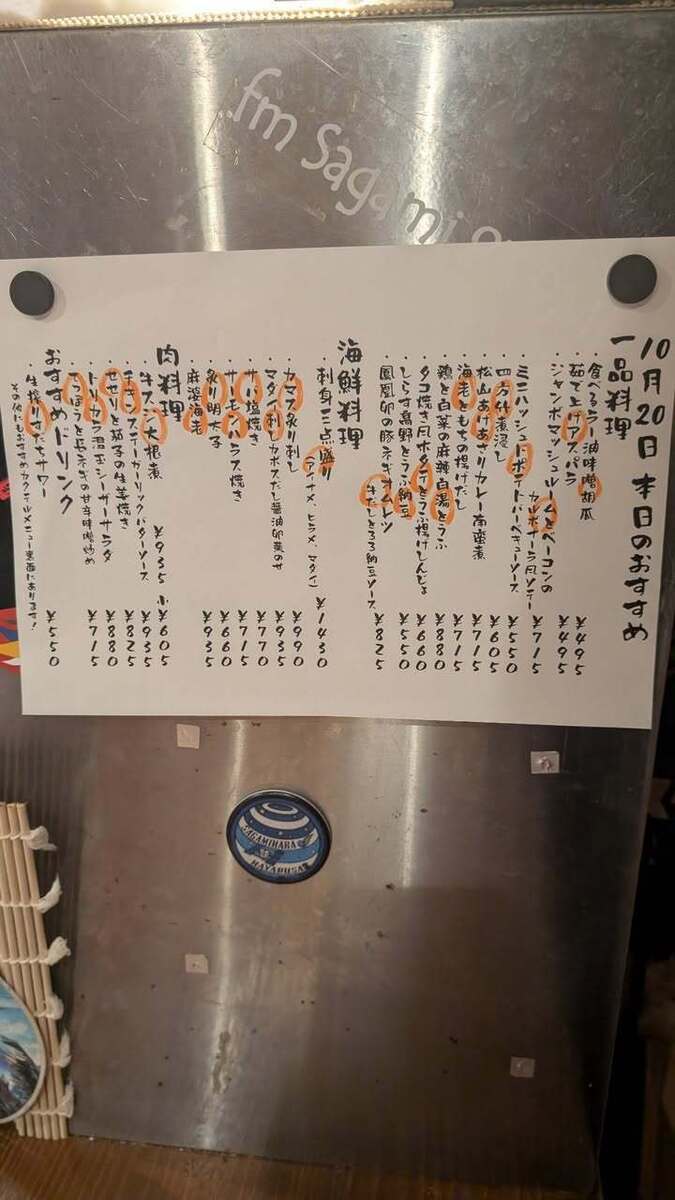 fm Sagami
10月20日 本日のおすすめ
一品料理
・食べるラー油味噌胡瓜 ¥495
・茹で上げアスパラ ¥495
・ジャンボマッシュルームとベーコンの
カルボナーラ風ソテー ¥715
・ミニハッシュドポテトバーベキューソース ¥550
・四方竹煮浸し ¥605
・松山あげあさりカレー南蛮煮 ¥715
・海老ともちの揚げだし ¥715
・鶏と白菜の麻辣白湯とうふ ¥880
・タコ焼き風ポタイとうふ揚げしんじょ ¥660
・しらす高野とうふ納豆 ¥550
・鳳凰卵の豚ネギオムレツ
牛だしとろろ納豆ソース ¥825
海鮮料理
・刺身三点盛り(アイナメ、ヒラメ、マダイ) ¥1430
・カマス炙り刺し ¥990
・マダイ刺しカボスだし醤油卵黄のせ ¥935
・サバ塩焼き ¥770
・サーモンハラス焼き ¥715
・炙り明太子 ¥660
・麻婆海老 ¥935
肉料理
・牛スジ大根煮 ¥935 小¥605
・チキンステーキガーリックバターソース ¥935
・せせりと茄子の生姜焼き ¥825
・トリカラ君玉シーザーサラダ ¥880
・てっぽうと長ネギの甘辛味噌炒め ¥715
おすすめドリンク
・生搾りすだちサワー ¥550
その他にもおすすめカクテルメニュー裏面にあります!
SAGAMIHARA
HAYABUSA